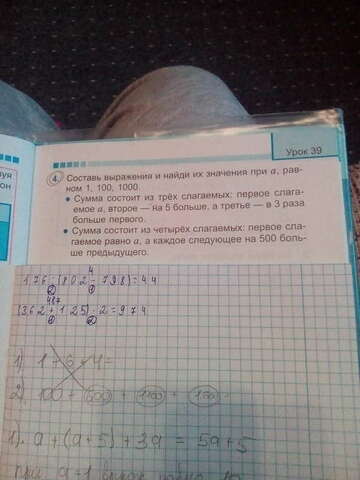 Урок 39
4. Составь выражения и найди их значения при a, рав-
ном 1, 100, 1000.
• Сумма состоит из трёх слагаемых: первое слага-
емое a, второе — на 5 больше, а третье — в 3 раза
больше первого.
• Сумма состоит из четырёх слагаемых: первое сла-
гаемое равно a, а каждое следующее на 500 боль-
ше предыдущего.
4
176:(802-798)=44
2 1
487
(362+125)·2=974
1 2
1) 1+6+4=
2) 100 + 600 + 1100 +
1). a+(a+5)+3a = 5a+5
при a=1